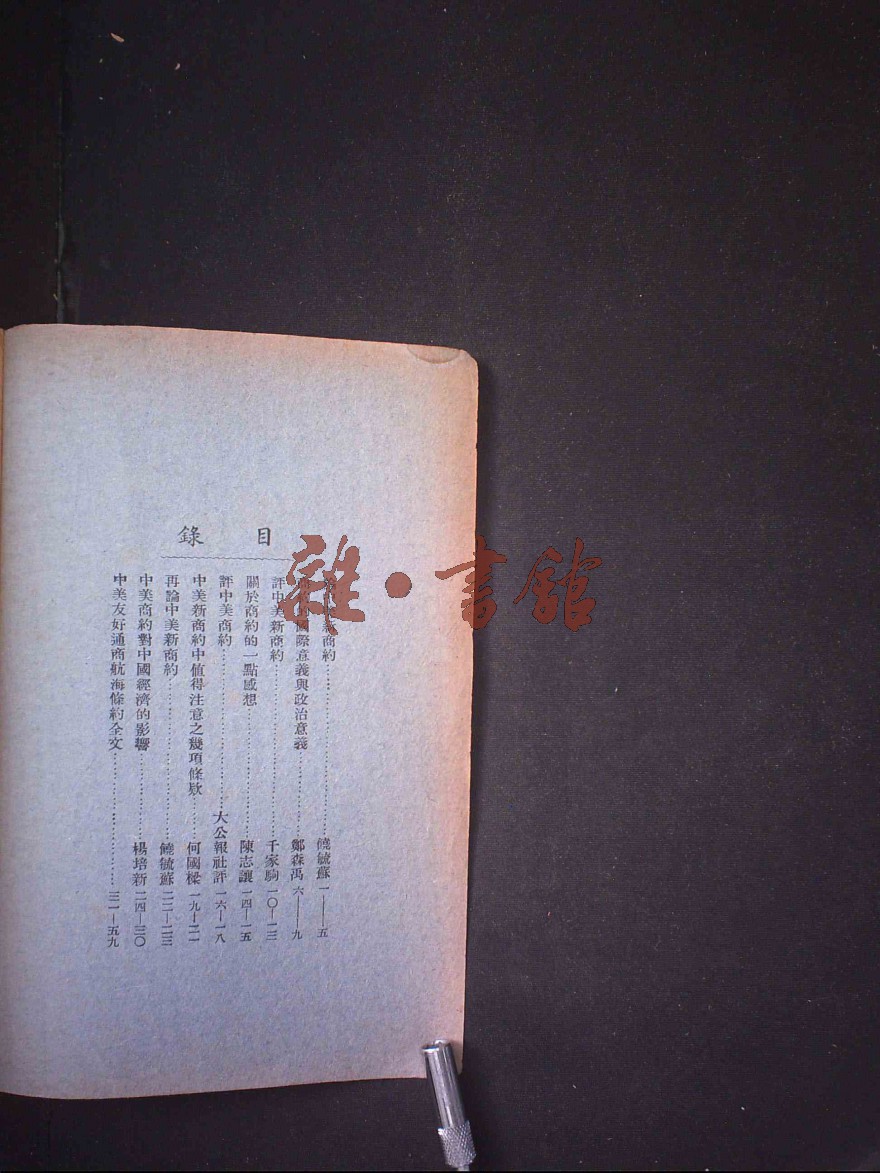 目錄
新商約……………饒毓蘇 一——五
國際意義與政治意義……………鄭森禹 六——九
評中美新商約……………千家駒 一〇—一三
關於商約的一點感想……………陳志讓 一四—一五
評中美商約……………大公報社評 一六—一八
中美新商約中值得注意之幾項條欵……………何國樑 一九—二一
再論中美新商約……………饒毓蘇 二二—二三
中美商約對中國經濟的影響……………楊培新 二四—三〇
中美友好通商航海條約全文……………三一—五九
雜·書館